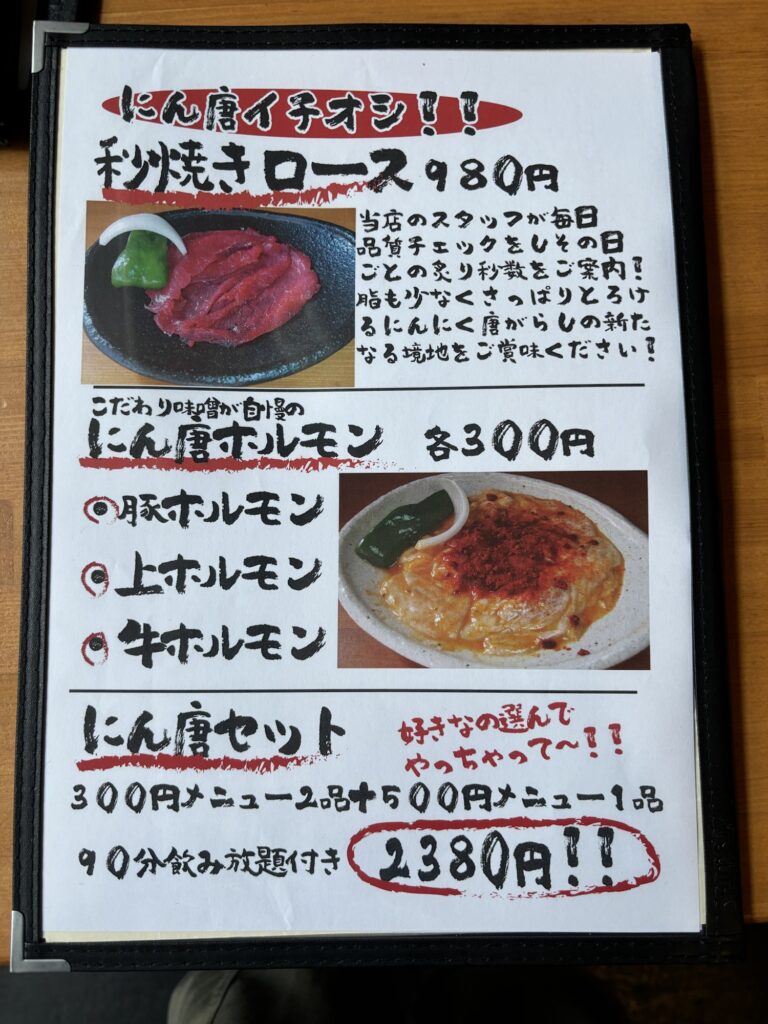 にん唐イチオシ!!
秒焼きロース980円
当店のスタッフが毎日
品質チェックをしその日
ごとの炙り秒数をご案内!
脂も少なくさっぱりとろけ
るにんにく唐がらしの新た
なる境地をご賞味ください!
こだわり味噌が自慢の
にん唐ホルモン 各300円
豚ホルモン
上ホルモン
牛ホルモン
にん唐セット
好きなの選んで
やっちゃって〜!!
300円メニュー2品+500円メニュー1品
90分飲み放題付き 2380円!!